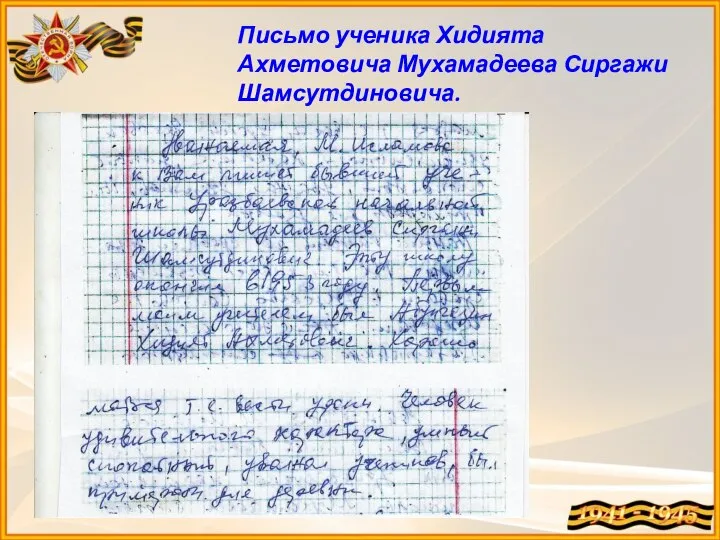 Письмо ученика Хидията
Ахметовича Мухамадеева Сиргажи
Шамсутдиновича.
Уважаемая, М. Исламова
к Вам пишет бывший уче-
ник Уразбаевской начальной
школы Мухамадеев Сиргажи
Шамсутдинович. Эту школу
окончил в 1953 году. Первым
моим учителем был
Хидият Ахметович.
т.е. вести уроки. Человек
удивительного характера, умный
спокойный, уважал учеников, был
примером для деревни.
1941-1945